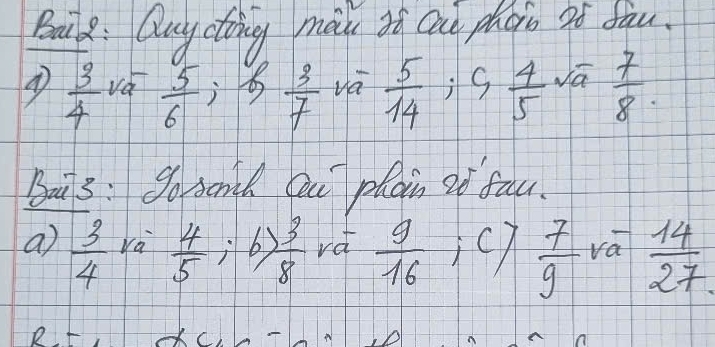 Bài 2: Quy đồng mẫu số các phân số sau.
a) 3/4 và 5/6 ; b) 3/7 và 5/14 ; c) 4/5 và 7/8.
Bài 3: So sánh các phân số sau.
a) 3/4 và 4/5 ; b) 3/8 và 9/16 ; c) 7/9 và 14/27.